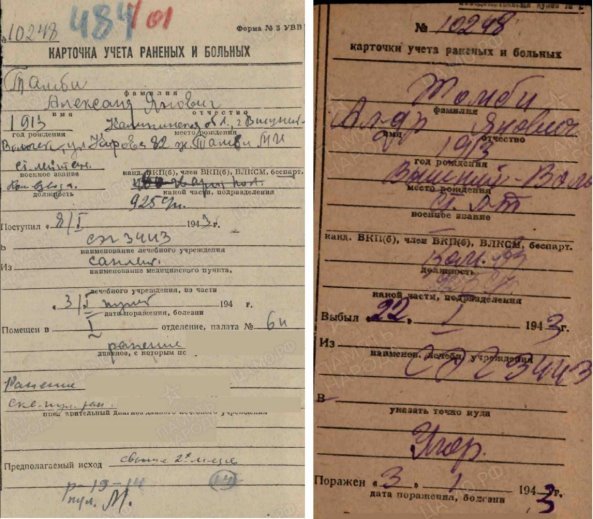 484/01
Форма № 5 УВВ
№ 10248
КАРТОЧКА УЧЕТА РАНЕНЫХ И БОЛЬНЫХ
Тамби
фамилия
Александ Янович
имя отчество
1913 Калининская обл. г. Вышний-
год рождения место рождения
Волочек, ул Кирова 82 Тамби
ст. лейтен.
воинское звание канд. ВКП(б), член ВКП(б), ВЛКСМ, беспарт.
Ком. взвода
должность какой части, подразделения
925
Поступил „8/I 1943 г.
ЭГ 3443
В
наименование лечебного учреждения
Из
наименование медицинского пункта,
лечебного учреждения, из части
„3/I 194 г.
дата поражения, болезни
Помещен в I отделение, палата № 6
ранение
диагноз, с которым
Ранение
предварительный диагноз данного лечебного учреждения
Предполагаемый исход свыше 2х
р-19-14
пул. М.
№ 10248
карточки учета раненых и больных
Томби
фамилия
Ал-др Янович
имя отчество
1913
год рождения
Вышний-Вол
место рождения
ст. л-т
военное звание
канд. ВКП(б), член ВКП(б), ВЛКСМ, беспарт.
Ком. вз
должность
925
какой части, подразделения
Выбыл 22 I 1943 г.
Из
наименов. лечебн. учреждения
3443
В
указать точно куда
Поражен „3 1 1943
дата поражения, болезни